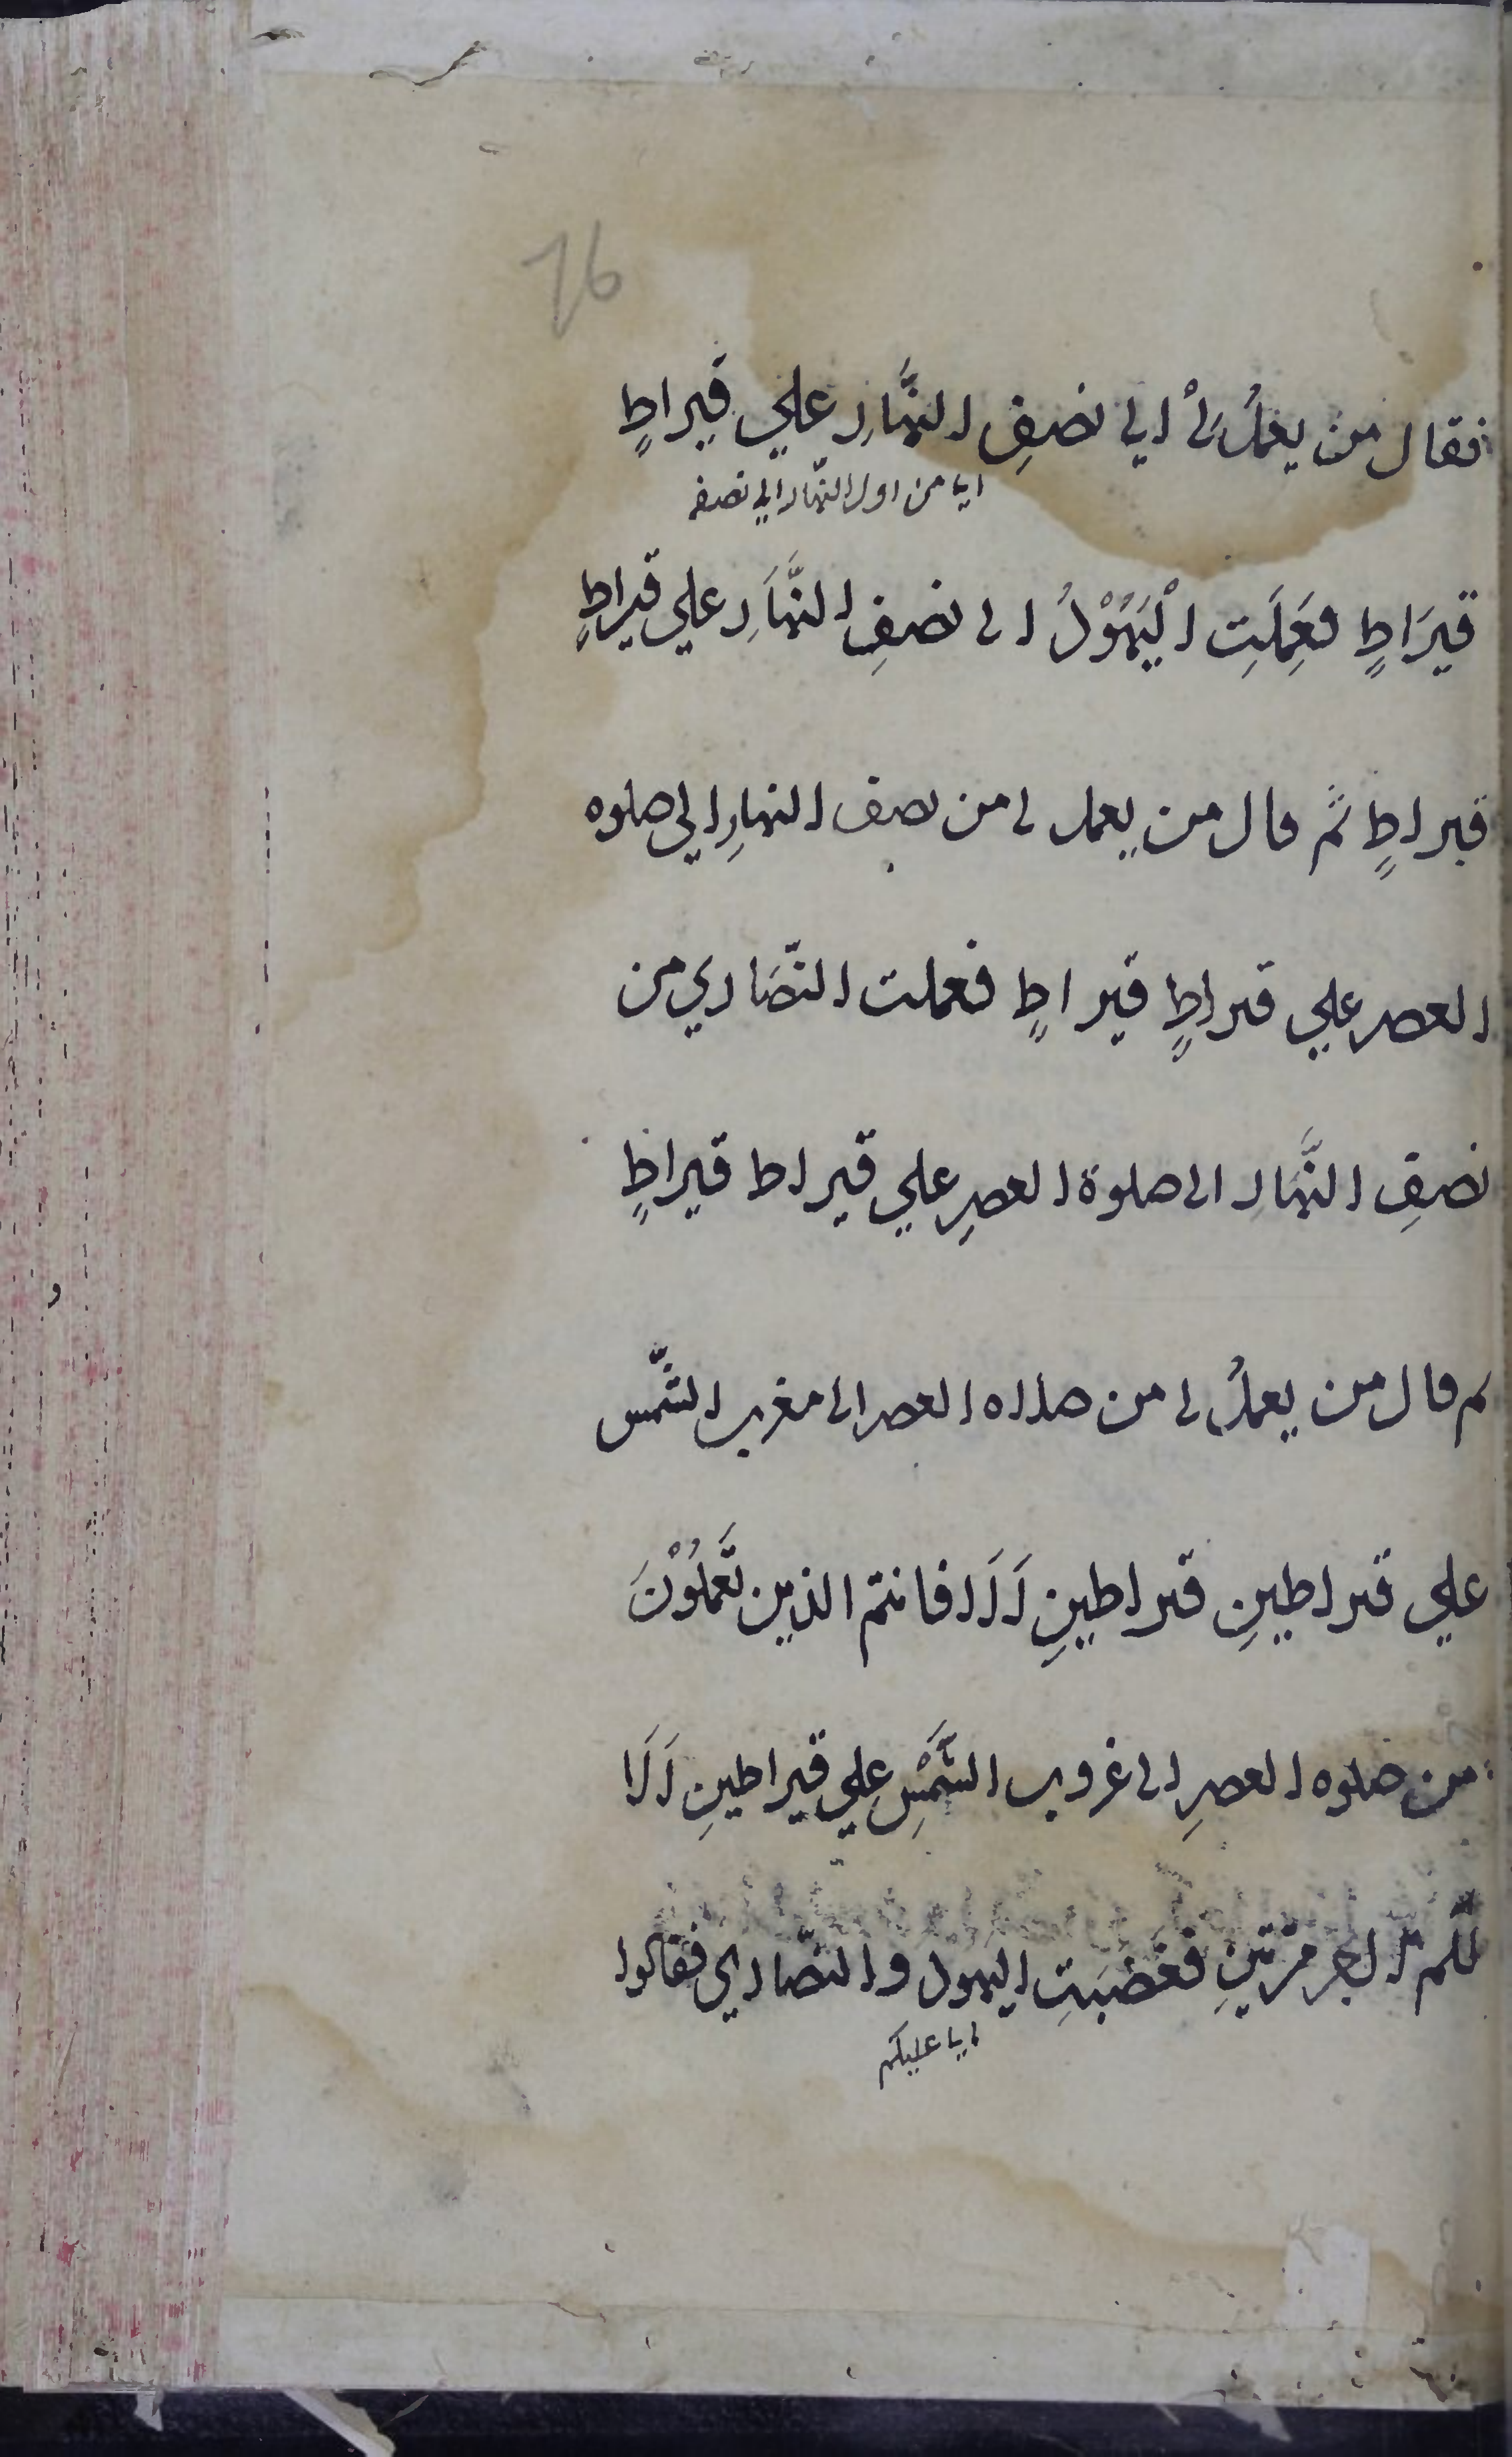 16
فقال من يعملُ لىْ الي نصفِ النَّهارِ علي قيراطٍ
ايا من اول النّهار الي نصفه
قيرَاطٍ فعَمِلَتِ الْيَهُوْدُ الى نصفِ النَّهَارِ علي قيراطٍ
قيراطٍ ثمَّ قال من يعمل لى من نصف النهارِ الي صلوه
العصر علي قيراطٍ قيراطٍ فعملت النّصَاري من
نصفِ النَّهارِ الى صلوة العصرِ علي قيراط قيراطٍ
ثم قال من يعملُ لى من صلاه العصر الى مغرب الشَّمس
علي قيراطينِ قيراطينِ اَلَا فانتم الذين تَعْمَلُوْنَ
من صلوه العصرِ الى غروب الشَّمْسِ علي قيراطينِ اَلَا
لَكُم الاجر مرّتينِ فغَضِبَتِ اليهود والنصّاري فقالوا
ايا عليكم